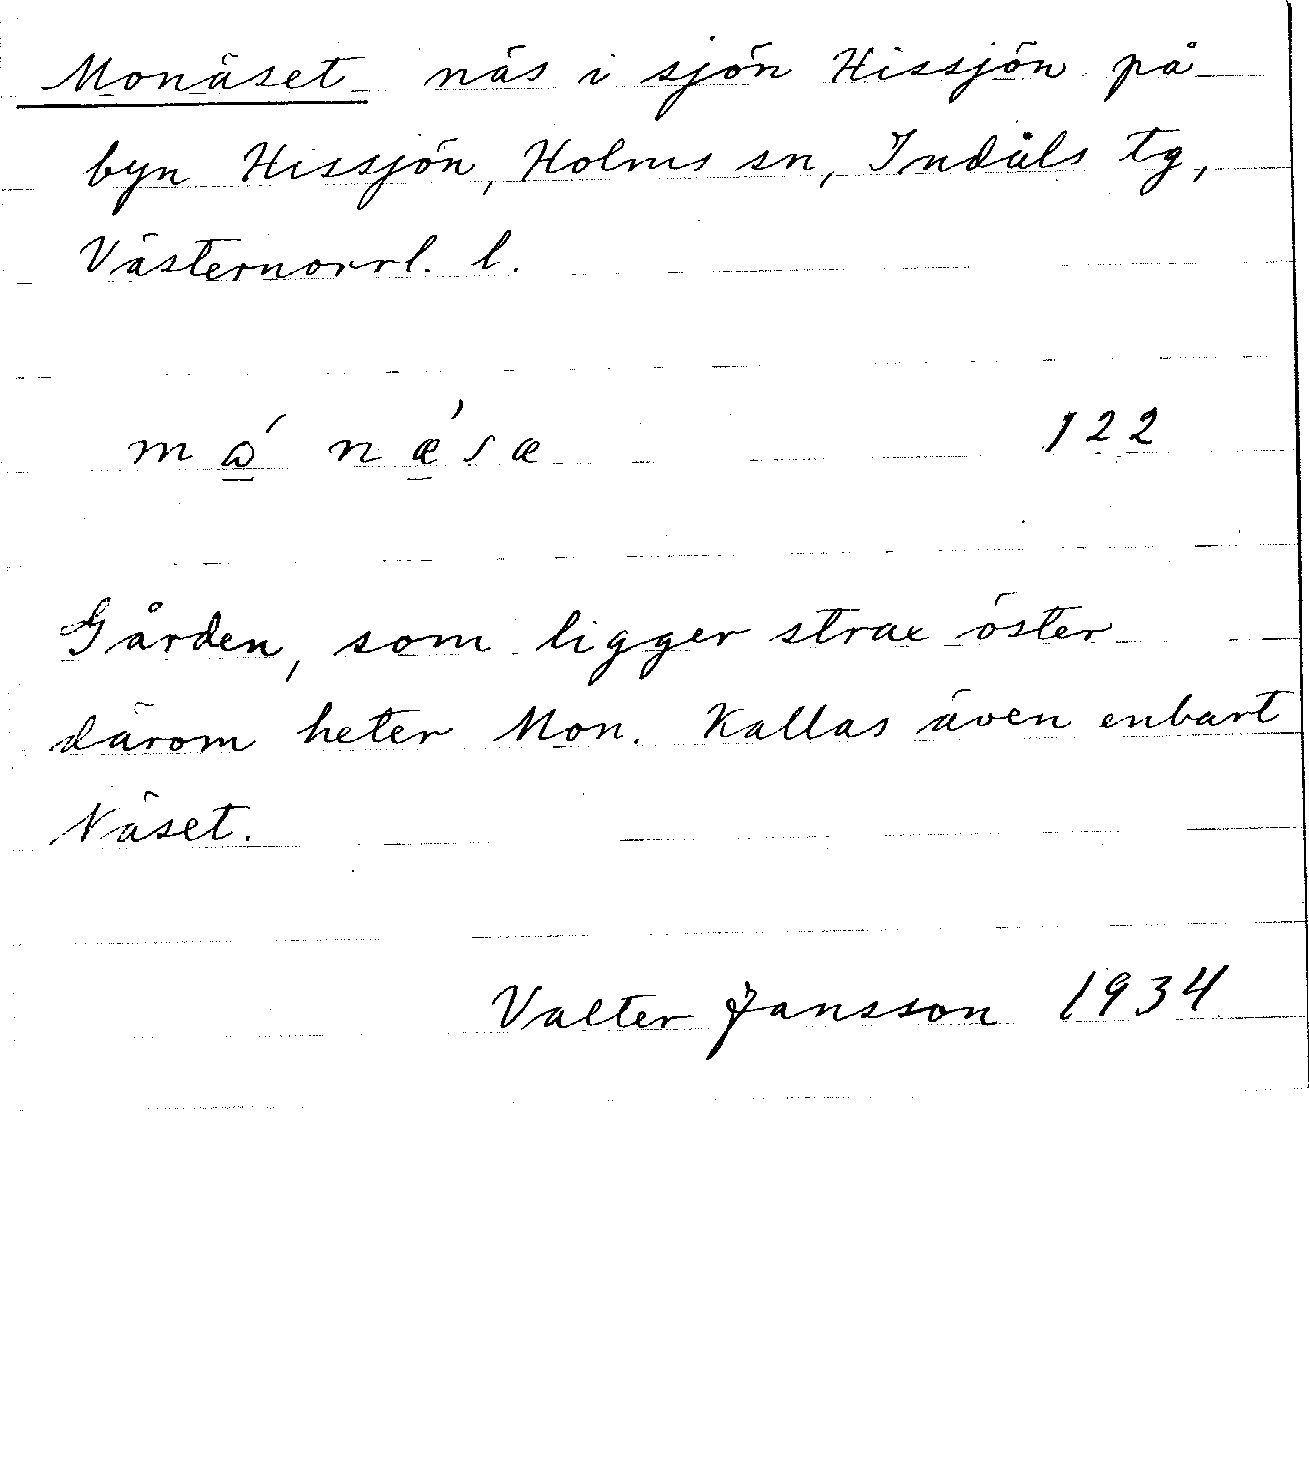 Monäset näs i sjön Hissjön på
byn Hissjön, Holms sn, Indals tg,
Västernorrl. l.
mɷ́ nǽsæ 122
Gården, som ligger strax öster
därom heter Mon. Kallas även enbart
Näset.
Valter Jansson 1934